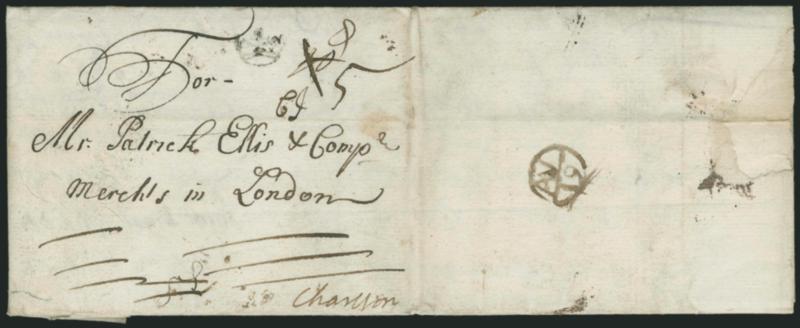 For -
8
5
Mr. Patrick Ellis & Compª
Merchts in London
AV
19